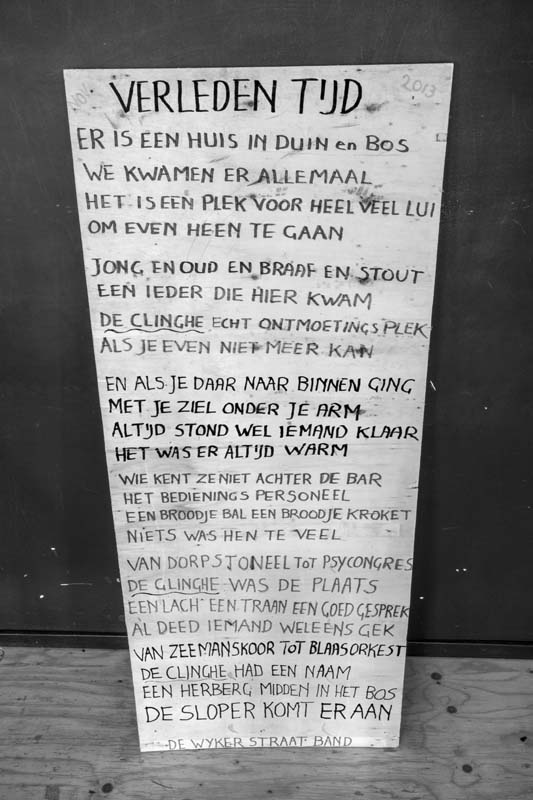 NOV. 2013
VERLEDEN TIJD
ER IS EEN HUIS IN DUIN en BOS
WE KWAMEN ER ALLEMAAL
HET IS EEN PLEK VOOR HEEL VEEL LUI
OM EVEN HEEN TE GAAN
JONG EN OUD EN BRAAF EN STOUT
EEN IEDER DIE HIER KWAM
DE CLINGHE ECHT ONTMOETINGSPLEK
ALS JE EVEN NIET MEER KAN
EN ALS JE DAAR NAAR BINNEN GING
MET JE ZIEL ONDER JE ARM
ALTIJD STOND WEL IEMAND KLAAR
HET WAS ER ALTIJD WARM
WIE KENT ZE NIET ACHTER DE BAR
HET BEDIENINGS PERSONEEL
EEN BROODJE BAL EEN BROODJE KROKET
NIETS WAS HEN TE VEEL
VAN DORPSTONEEL TOT PSYCONGRES
DE CLINGHE WAS DE PLAATS
EEN LACH EEN TRAAN EEN GOED GESPREK
AL DEED IEMAND WELEENS GEK
VAN ZEEMANSKOOR TOT BLAASORKEST
DE CLINGHE HAD EEN NAAM
EEN HERBERG MIDDEN IN HET BOS
DE SLOPER KOMT ER AAN
DE WYKER STRAAT BAND